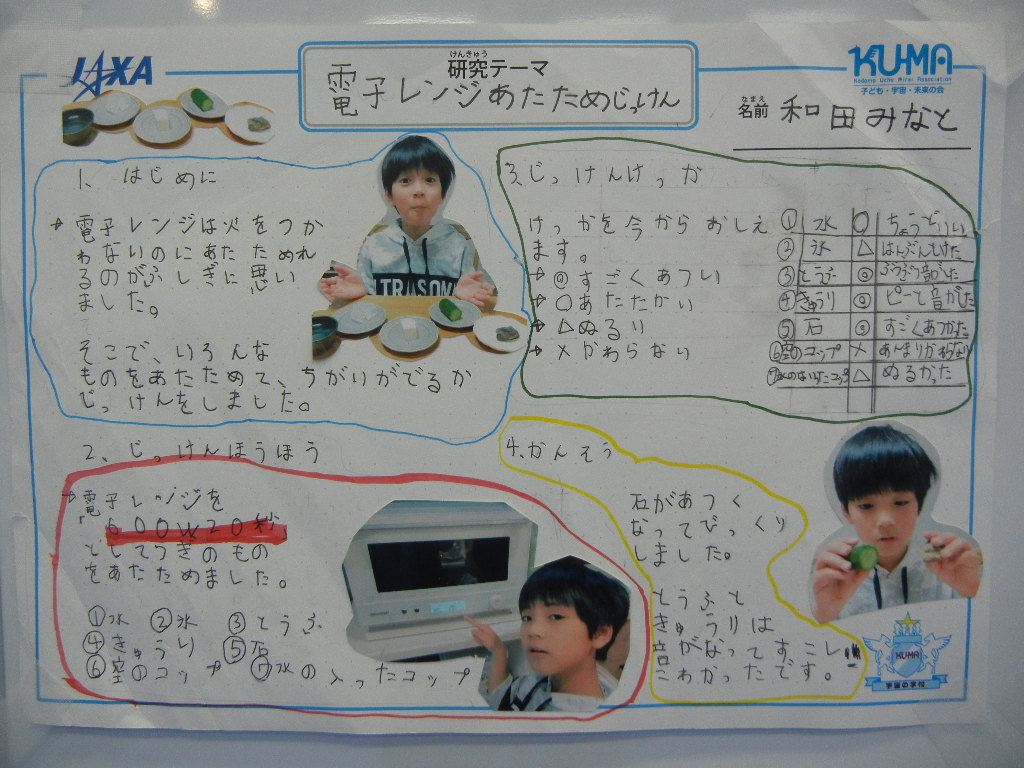 JAXA
けんきゅう
研究テーマ
電子レンジあたためじっけん
KU-MA
Kodomo Uchu Mirai Association
子ども・宇宙・未来の会
なまえ
名前 和田みなと
1、はじめに
→電子レンジは火をつか
わないのにあたためれ
るのがふしぎに思い
ました。
そこで、いろんな
ものをあたためて、ちがいがでるか
じっけんをしました。
TRASOM
2、じっけんほうほう
→電子レンジを
「600W20秒」
としてつぎのもの
をあたためました。
①水 ②氷 ③とうふ
④きゅうり ⑤石
⑥空のコップ ⑦水の入ったコップ
3、じっけんけっか
けっかを今からおしえ
ます。
→◎すごくあつい
→○あたたかい
→△ぬるい
→×かわらない
① 水 ○ ちょうどいい
② 氷 △ はんぶんとけた
③とうふ ◎ ぶつぶつ音がした
④きゅうり ◎ ピーと音がした
⑤ 石 ◎ すごくあつかった
⑥空のコップ × あんまりかわらない
△ ぬるかった
4、かんそう
石があつく
なってびっくり
しました。
とうふと
きゅうりは
音がなってすこし
こわかったです。
KU-MA
宇宙の学校